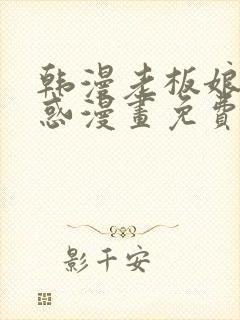 韩漫老板娘
惑漫畫免費
影千安